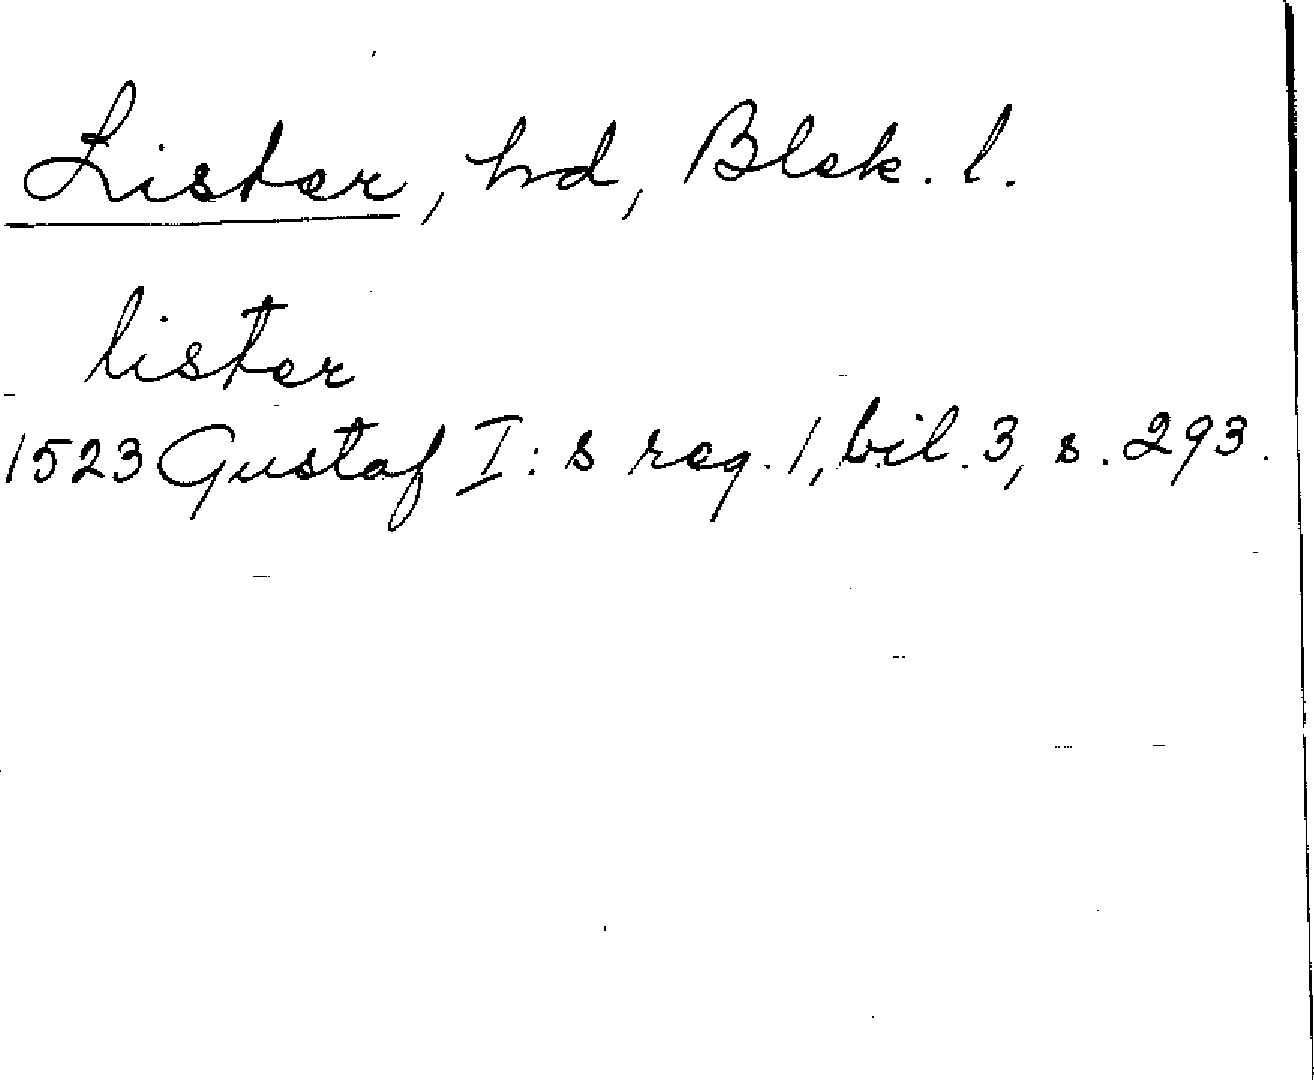 Lister, hd, Blek. l.
lister
1523 Gustaf I: s reg. 1, bil. 3, s. 293.